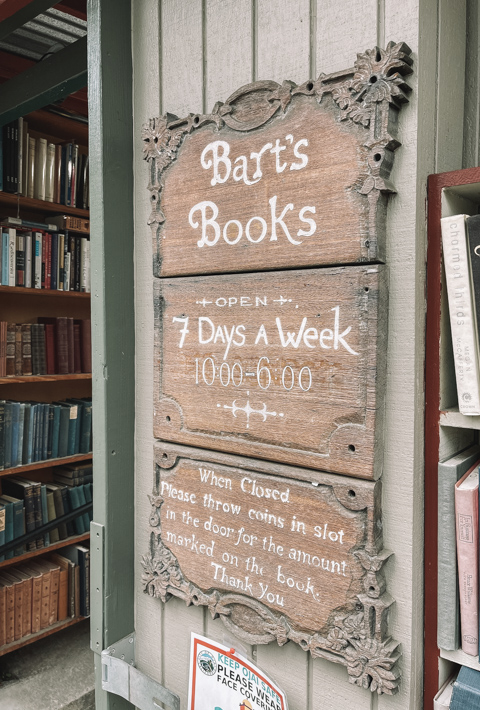 Bart's
Books
OPEN
7 Days A Week
10:00-6:00
When Closed
Please throw coins in slot
in the door for the amount
marked on the book.
Thank You
KEEP OJAI SAFE
PLEASE WEAR
FACE COVERING